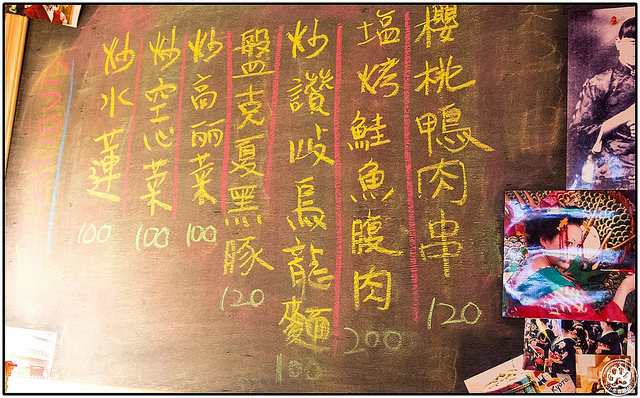 櫻桃鴨肉串 120
塩烤鮭魚腹肉 200
炒讚岐烏龍麵 100
盤克夏黑豚 120
炒高丽菜 100
炒空心菜 100
炒水蓮 100